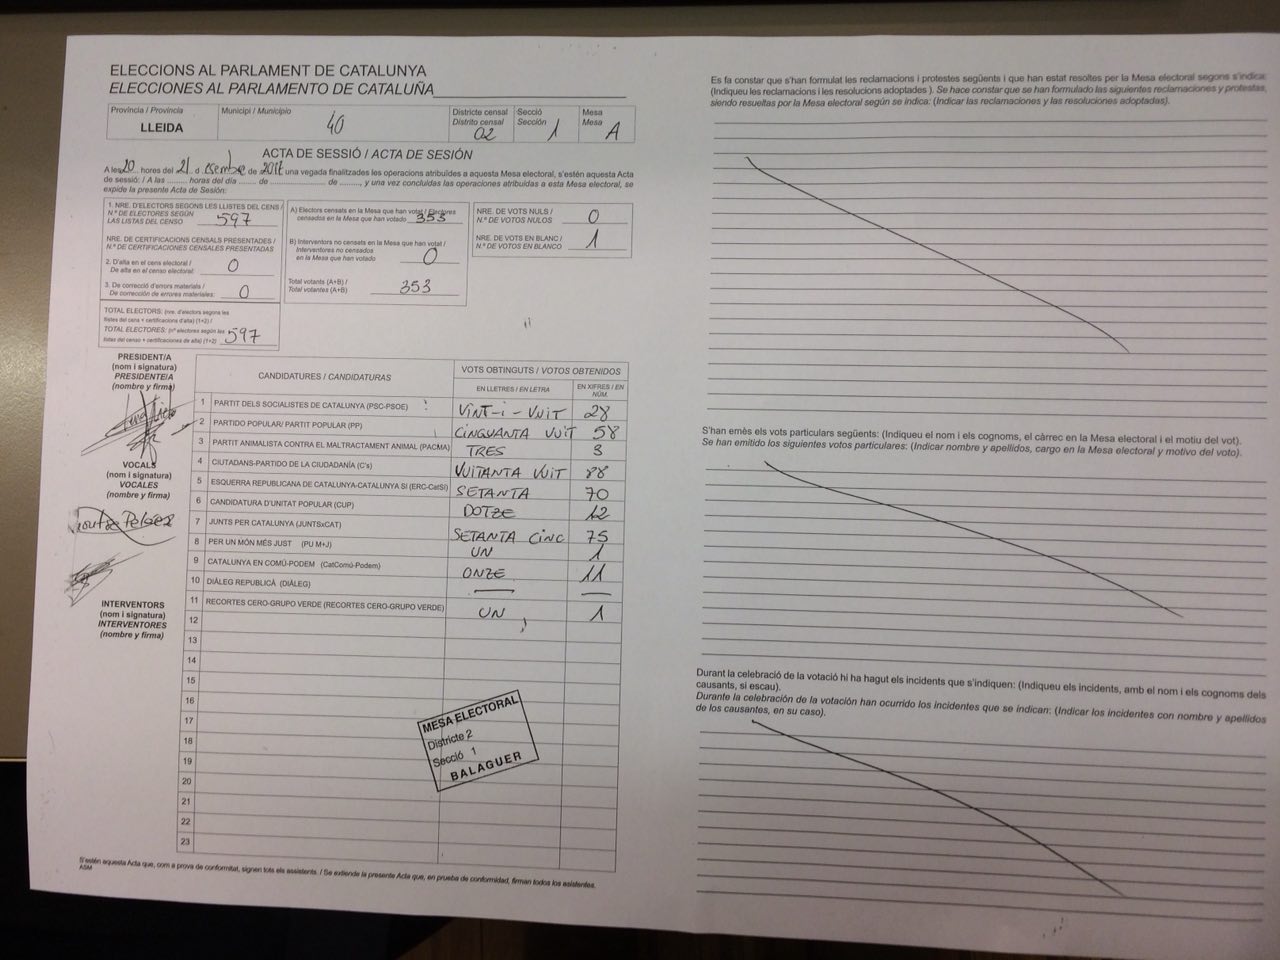 ELECCIONS AL PARLAMENT DE CATALUNYA
ELECCIONES AL PARLAMENTO DE CATALUÑA
Província / Provincia
LLEIDA
Municipi / Municipio
40
Districte censal
Distrito censal
02
Secció
Sección
1
Mesa
Mesa
A
ACTA DE SESSIÓ / ACTA DE SESIÓN
A les 20 hores del 21 d esembre de 2017 una vegada finalitzades les operacions atribuïdes a aquesta Mesa electoral, s'estén aquesta Acta
de sessió: / A las ......... horas del día ...... de ........................ de ........, y una vez concluidas las operaciones atribuidas a esta Mesa electoral, se
expide la presente Acta de Sesión:
1. NRE. D'ELECTORS SEGONS LES LLISTES DEL CENS /
N.º DE ELECTORES SEGÚN
LAS LISTAS DEL CENSO 597
NRE. DE CERTIFICACIONS CENSALS PRESENTADES /
N.º DE CERTIFICACIONES CENSALES PRESENTADAS
2. D'alta en el cens electoral /
De alta en el censo electoral: 0
3. De correcció d'errors materials /
De corrección de errores materiales: 0
TOTAL ELECTORS: (nre. d'electors segons les
llistes del cens + certificacions d'alta) (1+2) /
TOTAL ELECTORES: (nº electores según las
listas del censo + certificaciones de alta) (1+2) 597
A) Electors censats en la Mesa que han votat / Electores
censados en la Mesa que han votado 353
B) Interventors no censats en la Mesa que han votat /
Interventores no censados
en la Mesa que han votado 0
Total votants (A+B) /
Total votantes (A+B) 353
NRE. DE VOTS NULS /
N.º DE VOTOS NULOS 0
NRE. DE VOTS EN BLANC /
N.º DE VOTOS EN BLANCO 1
PRESIDENT/A
(nom i signatura)
PRESIDENTE/A
(nombre y firma)
VOCALS
(nom i signatura)
VOCALES
(nombre y firma)
INTERVENTORS
(nom i signatura)
INTERVENTORES
(nombre y firma)
CANDIDATURES / CANDIDATURAS
VOTS OBTINGUTS / VOTOS OBTENIDOS
EN LLETRES / EN LETRA
EN XIFRES / EN
NÚM.
1 PARTIT DELS SOCIALISTES DE CATALUNYA (PSC-PSOE) VINT-I-VUIT 28
2 PARTIDO POPULAR/ PARTIT POPULAR (PP) CINQUANTA VUIT 58
3 PARTIT ANIMALISTA CONTRA EL MALTRACTAMENT ANIMAL (PACMA) TRES 3
4 CIUTADANS-PARTIDO DE LA CIUDADANÍA (C's) VUITANTA VUIT 88
5 ESQUERRA REPUBLICANA DE CATALUNYA-CATALUNYA SÍ (ERC-CatSí) SETANTA 70
6 CANDIDATURA D'UNITAT POPULAR (CUP) DOTZE 12
7 JUNTS PER CATALUNYA (JUNTSxCAT) SETANTA CINC 75
8 PER UN MÓN MÉS JUST (PU M+J) UN 1
9 CATALUNYA EN COMÚ-PODEM (CatComú-Podem) ONZE 11
10 DIÀLEG REPUBLICÀ (DIÀLEG) — —
11 RECORTES CERO-GRUPO VERDE (RECORTES CERO-GRUPO VERDE) UN 1
12
13
14
15
16
17
18
19
20
21
22
23
MESA ELECTORAL
Districte 2
Secció 1
BALAGUER
S'estén aquesta Acta que, com a prova de conformitat, signen tots els assistents. / Se extiende la presente Acta que, en prueba de conformidad, firman todos los asistentes.
ASM
Es fa constar que s'han formulat les reclamacions i protestes següents i que han estat resoltes per la Mesa electoral segons s'indica:
(Indiqueu les reclamacions i les resolucions adoptades ). Se hace constar que se han formulado las siguientes reclamaciones y protestas,
siendo resueltas por la Mesa electoral según se indica: (Indicar las reclamaciones y las resoluciones adoptadas).
S'han emès els vots particulars següents: (Indiqueu el nom i els cognoms, el càrrec en la Mesa electoral i el motiu del vot).
Se han emitido los siguientes votos particulares: (Indicar nombre y apellidos, cargo en la Mesa electoral y motivo del voto).
Durant la celebració de la votació hi ha hagut els incidents que s'indiquen: (Indiqueu els incidents, amb el nom i els cognoms dels
causants, si escau).
Durante la celebración de la votación han ocurrido los incidentes que se indican: (Indicar los incidentes con nombre y apellidos
de los causantes, en su caso).